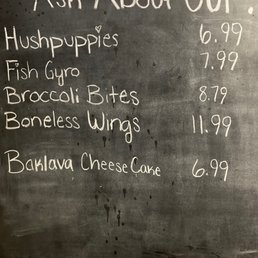 Ask About Our:
Hushpuppies 6.99
Fish Gyro 7.99
Broccoli Bites 8.79
Boneless Wings 11.99
Baklava Cheese Cake 6.99